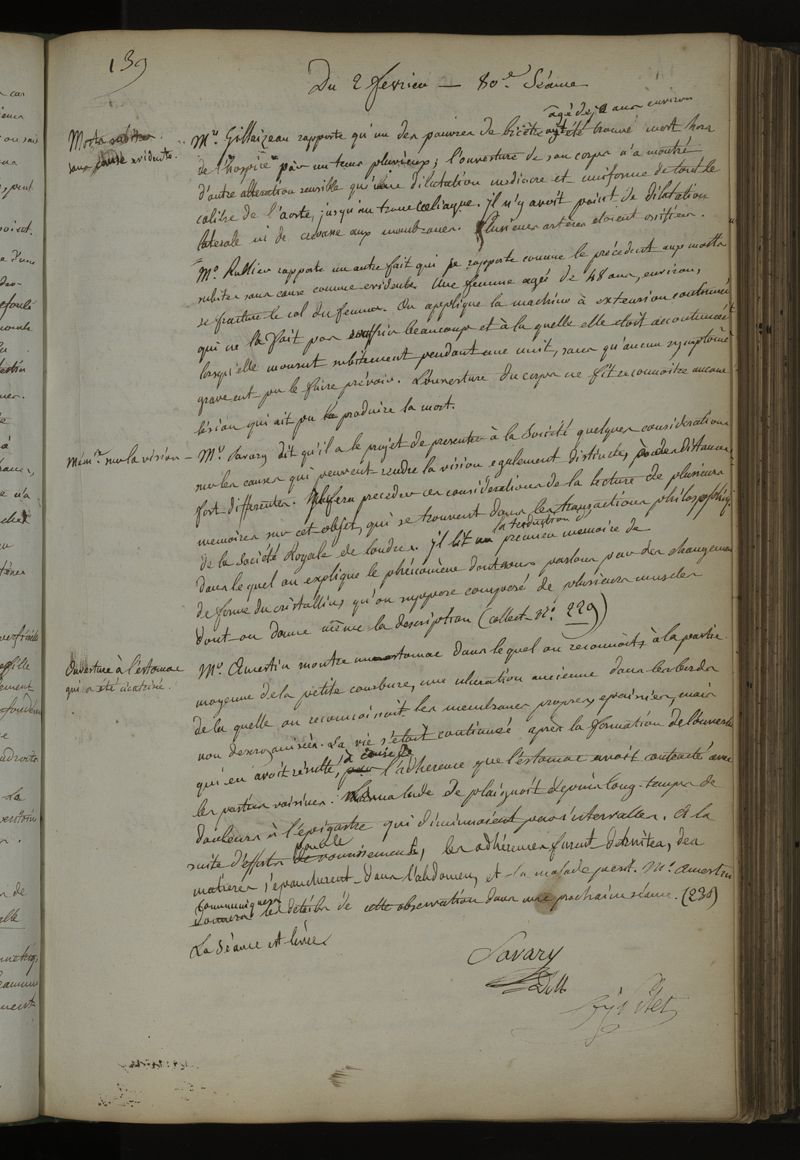 139
Du 2 fevrier — 80.e Séance
Morts subites
sans cause evidente.
agé de ans environ
Mr. Gillaizeau rapporte qu'un des pauvres de bicêtre a été trouvé mort hors
de l'hospice par un tems pluvieux; l'ouverture de son corps n'a montré
d'autre alteration sensible qu'une dilatation mediocre et uniforme de tout le
calibre de l'aorte, jusqu'au tronc coeliaque. Il n'y avoit point de dilatation
laterale ni de crevasse aux membranes. Plusieurs artères étoient ossifiées.
Mr. Rullier rapporte un autre fait qui se rapporte comme le précédent aux morts
subites sans cause connue evidente. Une femme agée de 48 ans, environ,
se fracture le col du femur. On applique la machine à extension continuée
qui ne la fait pas souffrir beaucoup et à la quelle elle étoit accoutumée
lorsqu'elle mourut subitement pendant une nuit, sans qu'aucun symptôme
grave eut pu le faire prévoir. L'ouverture du corps ne fit reconnoitre aucune
lésion qui ait pu produire la mort.
Mém.re sur la vision — Mr. Savary dit qu'il a le projet de presenter à la Société quelques considerations
sur les causes qui peuvent rendre la vision egalement distincte, à des distances
fort differentes. Il fera preceder ces considerations de la lecture de plusieurs
memoires sur cet objet, qui se trouvent dans les transactions philosophiq.
de la Société Royale de Londres. Il lit la traduction premier memoire de
dans lequel on explique le phénomène dont nous parlons par des changemens
de forme du cristallin qu'on suppose composé de plusieurs muscles
dont on donne même la description (collect. No. 229)
Ouverture à l'estomac
qui a été cicatrisée.
Mr. Amestin montre un estomac dans lequel on reconnoit, à la partie
moyenne de la petite courbure, une ulceration ancienne dans les bords
de la quelle on reconnoissoit les membranes propres, epaissies, mais
non desorganisées. La vie s'étoit continuée après la formation de l'ouverture
qui en avoit résulté, à cause de l'adherence que l'estomac avoit contracté avec
les parties voisines. Le malade se plaignoit depuis long-temps de
douleurs à l'épigastre qui diminuoient par intervalles. A la
suite d'efforts pour le vomissement, les adhérences furent détruites, des
matieres s'épancherent dans l'abdomen, et le malade périt. Mr. Amestin
communiquera les détails de cette observation dans une prochaine séance. (230)
La Séance est levée
Savary